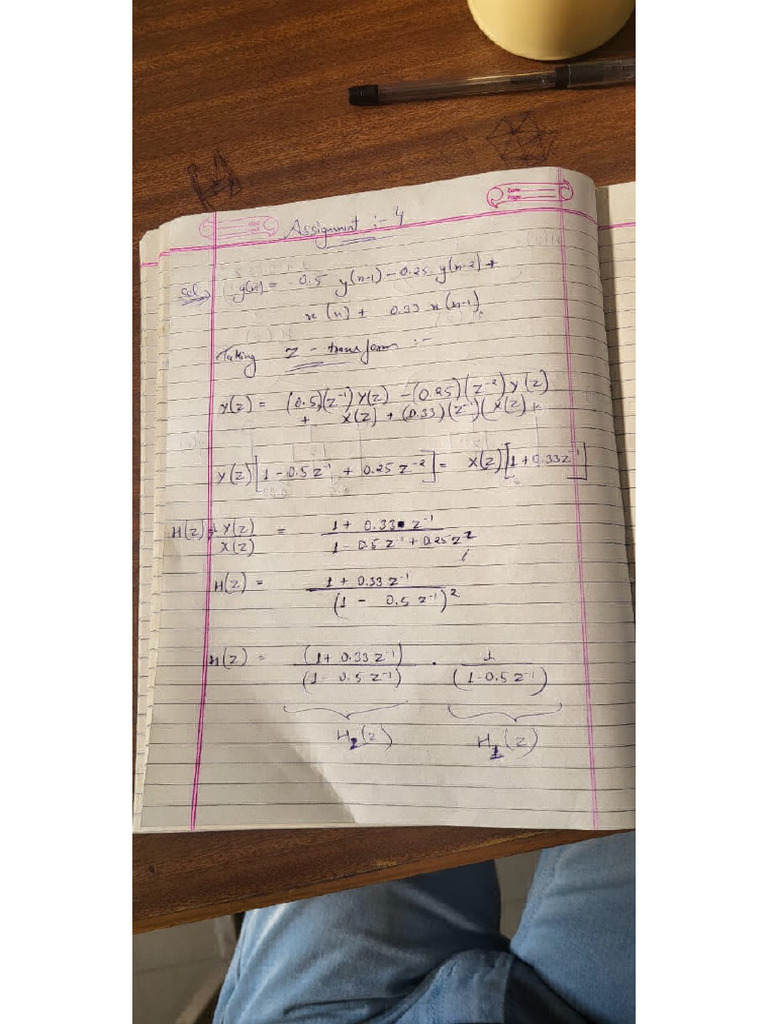 Date
Page
Assignment :- 4
Sol y(n) = 0.5 y(n-1) - 0.25 y(n-2) +
x(n) + 0.33 x(n-1)
Taking Z - transform :-
Y(z) = (0.5)(z⁻¹) Y(z) - (0.25)(z⁻²) Y(z)
+ X(z) + (0.33)(z⁻¹)(X(z)
Y(z)[1 - 0.5 z⁻¹ + 0.25 z⁻²] = X(z)[1 + 0.33 z⁻¹]
H(z) = Y(z)/X(z) = 1 + 0.33 z⁻¹ / 1 - 0.5 z⁻¹ + 0.25 z⁻²
H(z) = 1 + 0.33 z⁻¹ / (1 - 0.5 z⁻¹)²
H(z) = (1 + 0.33 z⁻¹) / (1 - 0.5 z⁻¹) . 1 / (1 - 0.5 z⁻¹)
H₂(z) H₁(z)